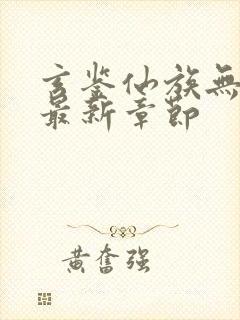 玄鉴仙族無
最新章節
黄奮强